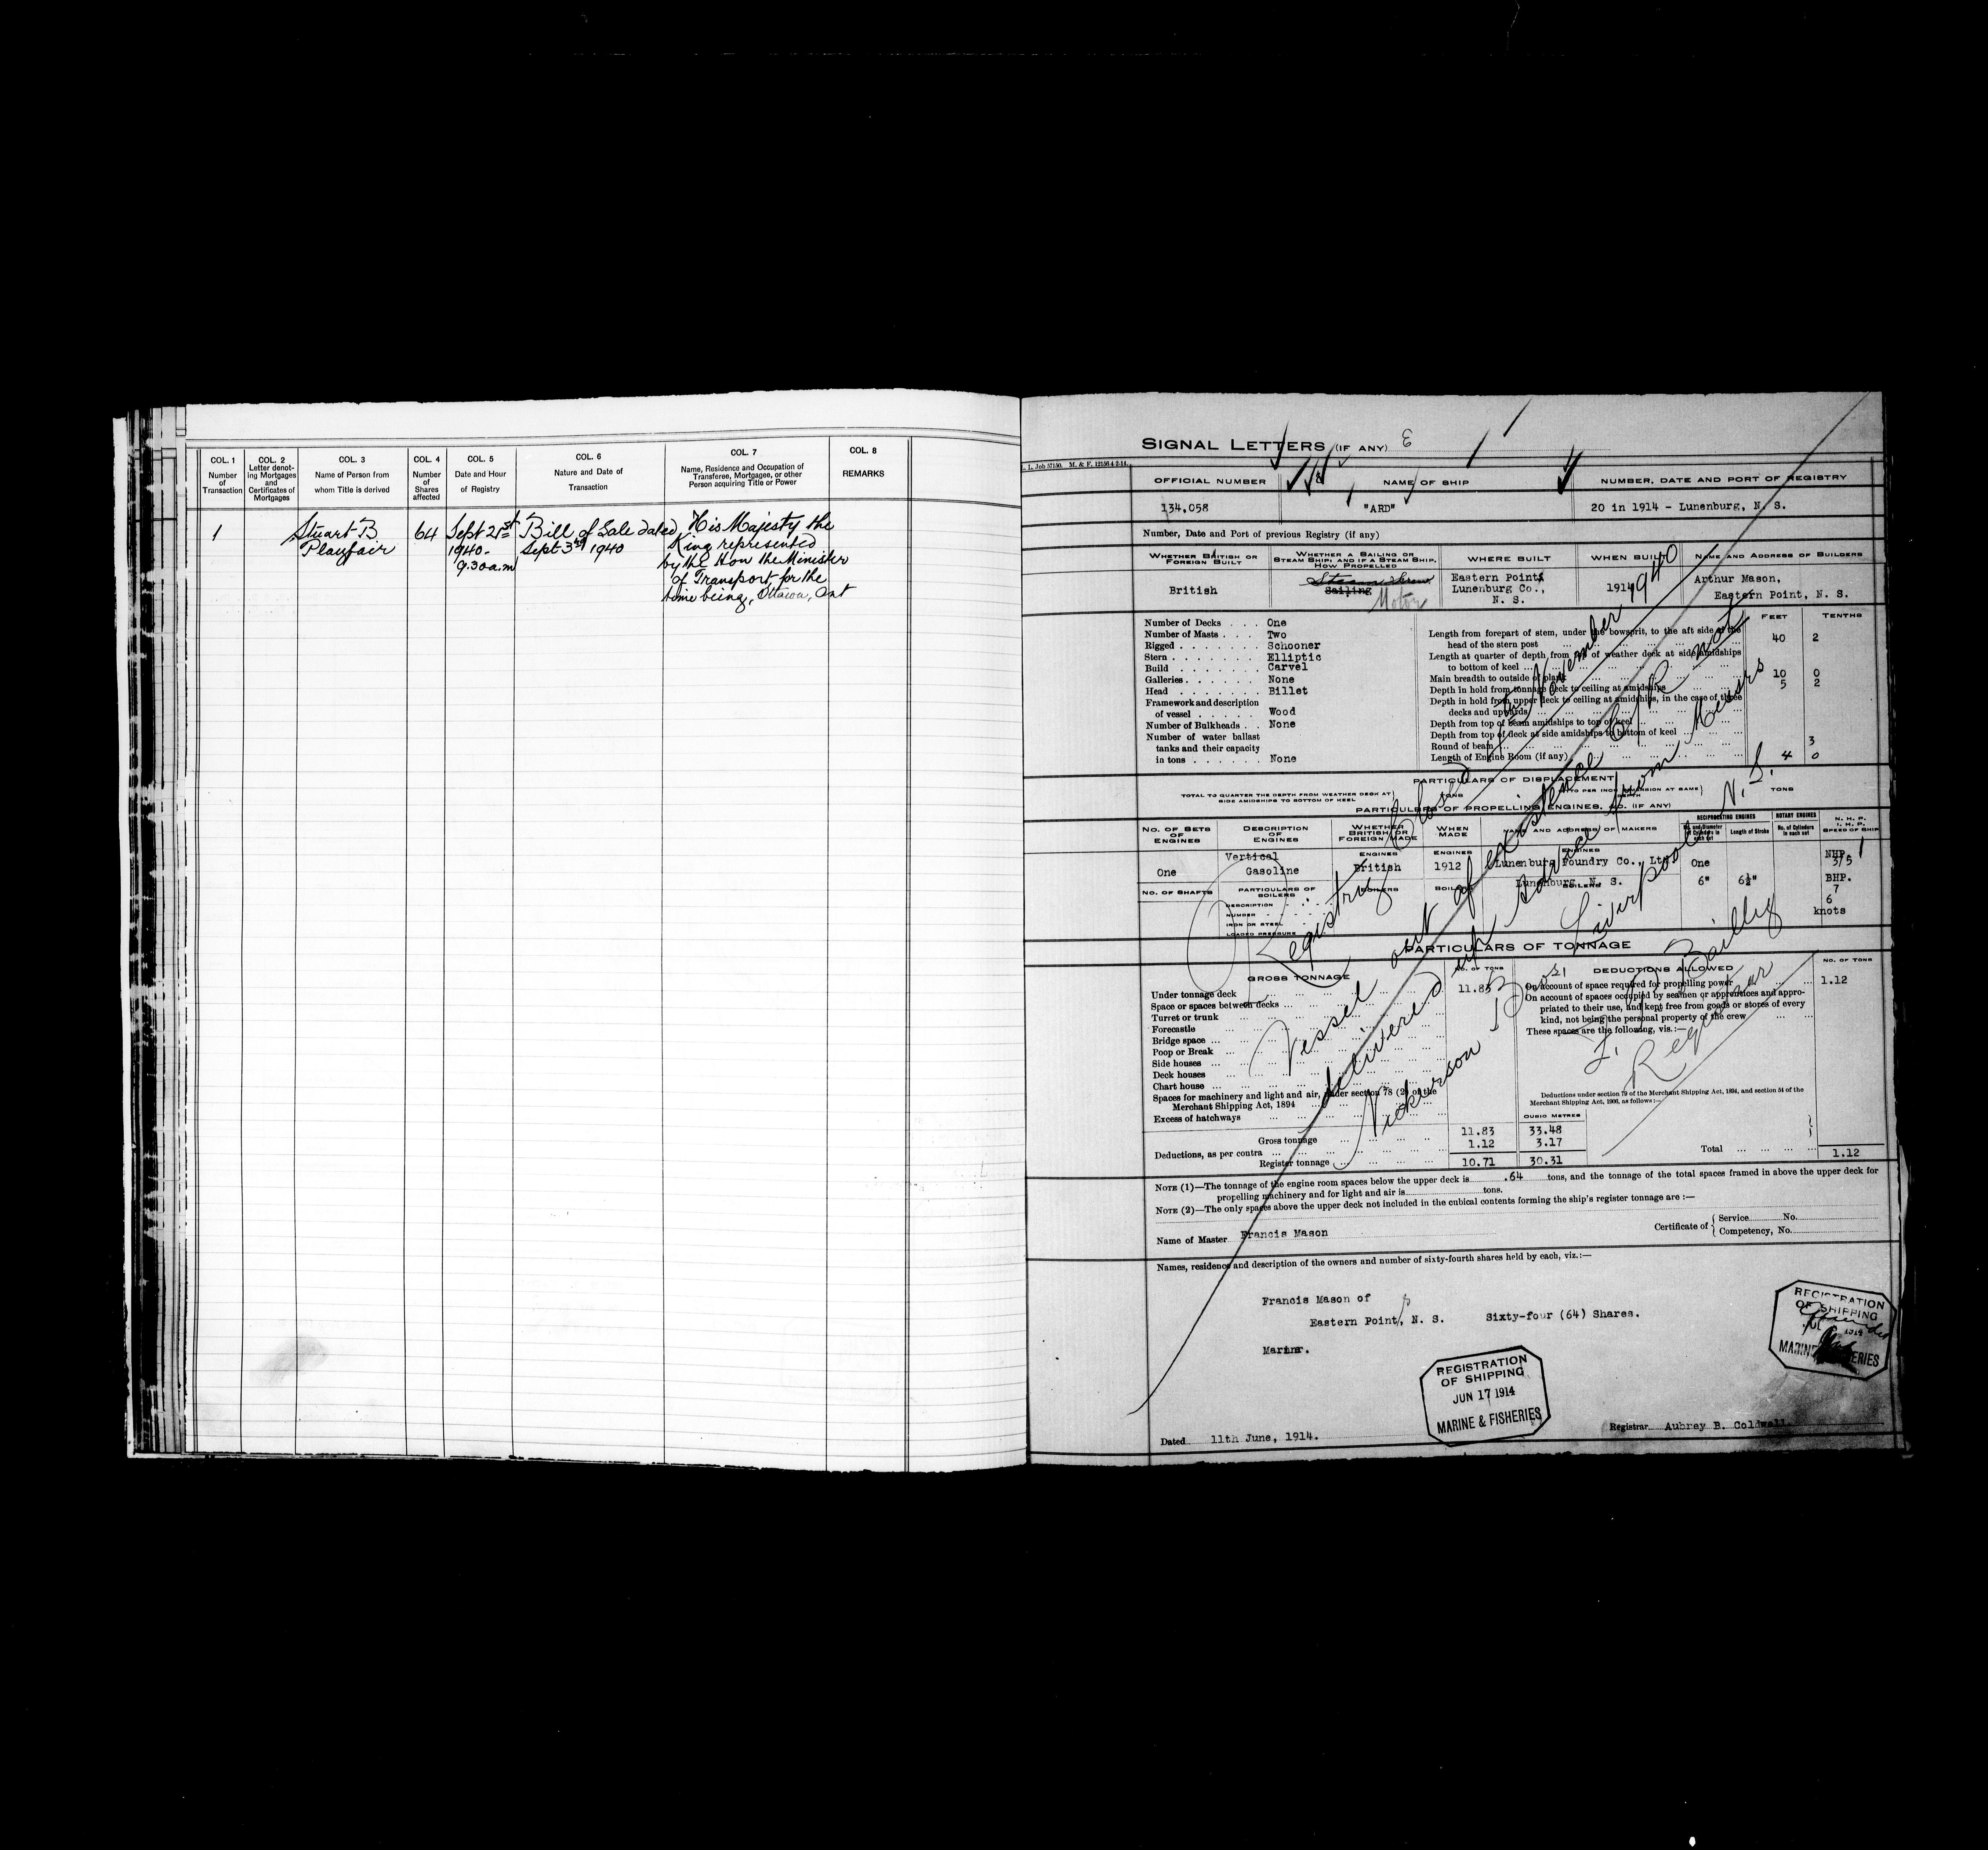 COL. 1
Number
of
Transaction
COL. 2
Letter denot-
ing Mortgages
and
Certificates of
Mortgages
COL. 3
Name of Person from
whom Title is derived
COL. 4
Number
of
Shares
affected
COL. 5
Date and Hour
of Registry
COL. 6
Nature and Date of
Transaction
COL. 7
Name, Residence and Occupation of
Transferee, Mortgagee, or other
Person acquiring Title or Power
COL. 8
REMARKS
1
Stuart B
Playfair
64
Sept 21st
1940-
9.30 a.m
Bill of Sale dated
Sept 3rd 1940
His Majesty the
King represented
by the Hon the Minister
of Transport, for the
time being, Ottawa, Ont
SIGNAL LETTERS (IF ANY)
OFFICIAL NUMBER
NAME OF SHIP
NUMBER, DATE AND PORT OF REGISTRY
134,058
"ARD"
20 in 1914 - Lunenburg, N. S.
Number, Date and Port of previous Registry (if any)
WHETHER BRITISH OR
FOREIGN BUILT
WHETHER A SAILING OR
STEAM SHIP, AND IF A STEAM SHIP,
HOW PROPELLED
WHERE BUILT
WHEN BUILT
NAME AND ADDRESS OF BUILDERS
British
Steam Screw
Sailing
Motor
Eastern Point,
Lunenburg Co.,
N. S.
1914
Arthur Mason,
Eastern Point, N. S.
FEET TENTHS
Number of Decks . . . One
Number of Masts . . . Two
Rigged . . . . . . . . Schooner
Stern . . . . . . . . Elliptic
Build . . . . . . . . Carvel
Galleries . . . . . . . None
Head . . . . . . . . Billet
Framework and description
of vessel . . . . . Wood
Number of Bulkheads . . None
Number of water ballast
tanks and their capacity
in tons . . . . . . None
Length from forepart of stem, under the bowsprit, to the aft side of the
head of the stern post 40 2
Length at quarter of depth from top of weather deck at side amidships
to bottom of keel
Main breadth to outside of plank 10 0
Depth in hold from tonnage deck to ceiling at amidships 5 2
Depth in hold from upper deck to ceiling at amidships, in the case of three
decks and upwards
Depth from top of beam amidships to top of keel
Depth from top of deck at side amidships to bottom of keel
Round of beam 3
Length of Engine Room (if any) 4 0
PARTICULARS OF DISPLACEMENT
TOTAL TO QUARTER THE DEPTH FROM WEATHER DECK AT
SIDE AMIDSHIPS TO BOTTOM OF KEEL
TONS
TONS
PARTICULARS OF PROPELLING ENGINES, &C. (IF ANY)
NO. OF SETS
OF
ENGINES
DESCRIPTION
OF
ENGINES
WHETHER
BRITISH OR
FOREIGN MADE
WHEN
MADE
NAME AND ADDRESS OF MAKERS
RECIPROCATING ENGINES
No. and Diameter
of Cylinders in
each set
Length of Stroke
ROTARY ENGINES
No. of Cylinders
in each set
N. H. P.
I. H. P.
SPEED OF SHIP
ENGINES
ENGINES
ENGINES
One
Vertical
Gasoline
British
1912
Lunenburg Foundry Co., Ltd
Lunenburg, N. S.
One
6"
6½"
NHP.
3/5
BHP.
7
6
knots
NO. OF SHAFTS
PARTICULARS OF
BOILERS
BOILERS
BOILERS
BOILERS
DESCRIPTION
NUMBER
IRON OR STEEL
LOADED PRESSURE
PARTICULARS OF TONNAGE
GROSS TONNAGE
NO. OF TONS
DEDUCTIONS ALLOWED
NO. OF TONS
Under tonnage deck 11.83
Space or spaces between decks
Turret or trunk
Forecastle
Bridge space
Poop or Break
Side houses
Deck houses
Chart house
Spaces for machinery and light and air, under section 78 (2) of the
Merchant Shipping Act, 1894
Excess of hatchways
On account of space required for propelling power 1.12
On account of spaces occupied by seamen or apprentices and appro-
priated to their use, and kept free from goods or stores of every
kind, not being the personal property of the crew
These spaces are the following, viz.:—
Deductions under section 79 of the Merchant Shipping Act, 1894, and section 54 of the
Merchant Shipping Act, 1906, as follows:—
CUBIC METRES
Gross tonnage 11.83 33.48
Deductions, as per contra 1.12 3.17
Register tonnage 10.71 30.31
Total 1.12
NOTE (1)—The tonnage of the engine room spaces below the upper deck is .64 tons, and the tonnage of the total spaces framed in above the upper deck for
propelling machinery and for light and air is tons.
NOTE (2)—The only spaces above the upper deck not included in the cubical contents forming the ship's register tonnage are :—
Name of Master Francis Mason
Certificate of { Service No.
Competency, No.
Names, residence and description of the owners and number of sixty-fourth shares held by each, viz.:—
Francis Mason of
Eastern Point, N. S. Sixty-four (64) Shares.
Mariner.
REGISTRATION
OF SHIPPING
JUN 17 1914
MARINE & FISHERIES
REGISTRATION
OF SHIPPING
JUL 1914
MARINE & FISHERIES
Dated 11th June, 1914.
Registrar Aubrey B. Coldwell
Registry Closed November 1940
Vessel out of existence C/R not
delivered up advice from Messrs
Nickerson Bros, Liverpool N.S.
Bailly
Registrar